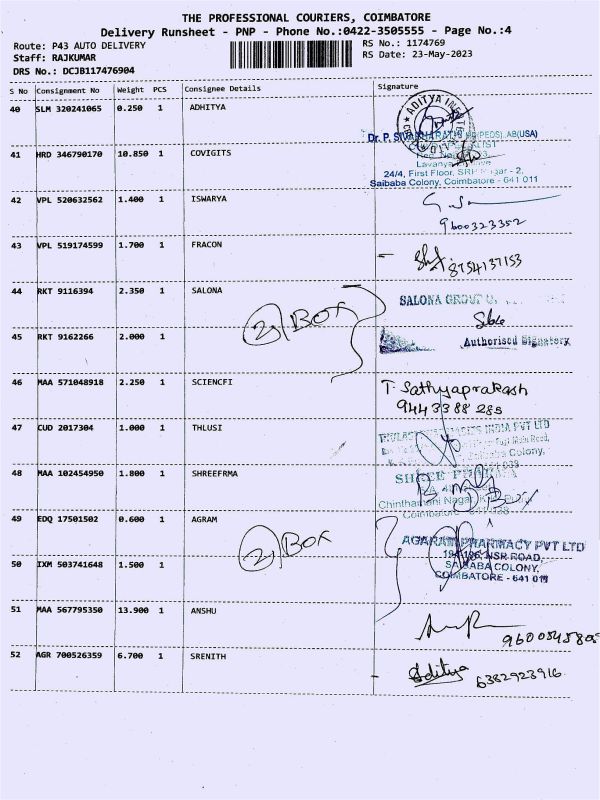 THE PROFESSIONAL COURIERS, COIMBATORE
Delivery Runsheet - PNP - Phone No.:0422-3505555 - Page No.:4
Route: P43 AUTO DELIVERY
RS No.: 1174769
Staff: RAJKUMAR
RS Date: 23-May-2023
DRS No.: DCJB117476904
S No Consignment No Weight PCS Consignee Details Signature
40 SLM 320241065 0.250 1 ADHITYA
ADITYA
Dr. P. (PEDS), AB(USA)
41 HRD 346790170 10.850 1 COVIGITS
Lavanya
24/4, First Floor, Nagar - 2,
Saibaba Colony, Coimbatore - 641 011
42 VPL 520632562 1.400 1 ISWARYA
9600323352
43 VPL 519174599 1.700 1 FRACON
8754137153
44 RKT 9116394 2.350 1 SALONA
SALONA GROUP
2) BOX
45 RKT 9162266 2.000 1
Authorised Signatory
46 MAA 571048918 2.250 1 SCIENCFI
T. Sathyaprakash
9443388285
47 CUD 2017304 1.000 1 THLUSI
INDIA PVT LTD
Main Road,
Colony,
48 MAA 102454950 1.800 1 SHREEFRMA
SHREE
Chinthamani Nagar,
Coimbatore
49 EDQ 17501502 0.600 1 AGRAM
2) BOX
AGARAM PHARMACY PVT LTD
NSR ROAD,
50 IXM 503741648 1.500 1
SAIBABA COLONY,
COIMBATORE - 641 011
51 MAA 567795350 13.900 1 ANSHU
52 AGR 700526359 6.700 1 SRENITH
Aditya 6382923916